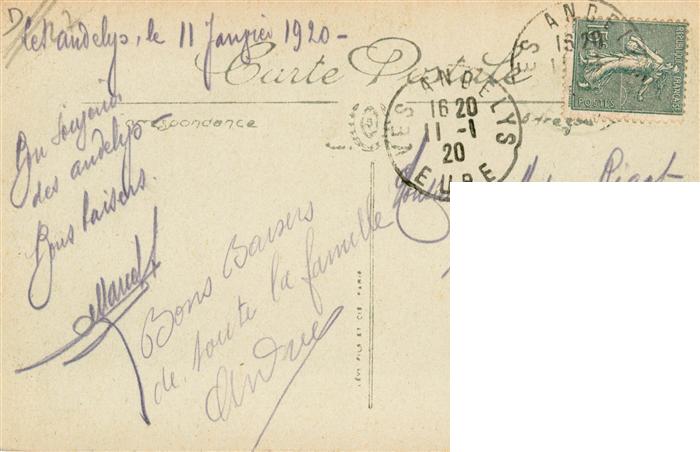 Les andelys, le 11 Janvier 1920 -
Carte Postale
Correspondance
Adresse
Bon Souvenir
des andelys
Bons baisers.
Marcel
Bons Baisers
de toute la famille
André
LES ANDELYS
16 20
11 -1
20
EURE
ANDE
16 20
POSTES
LÉVY FILS ET CIE PARIS